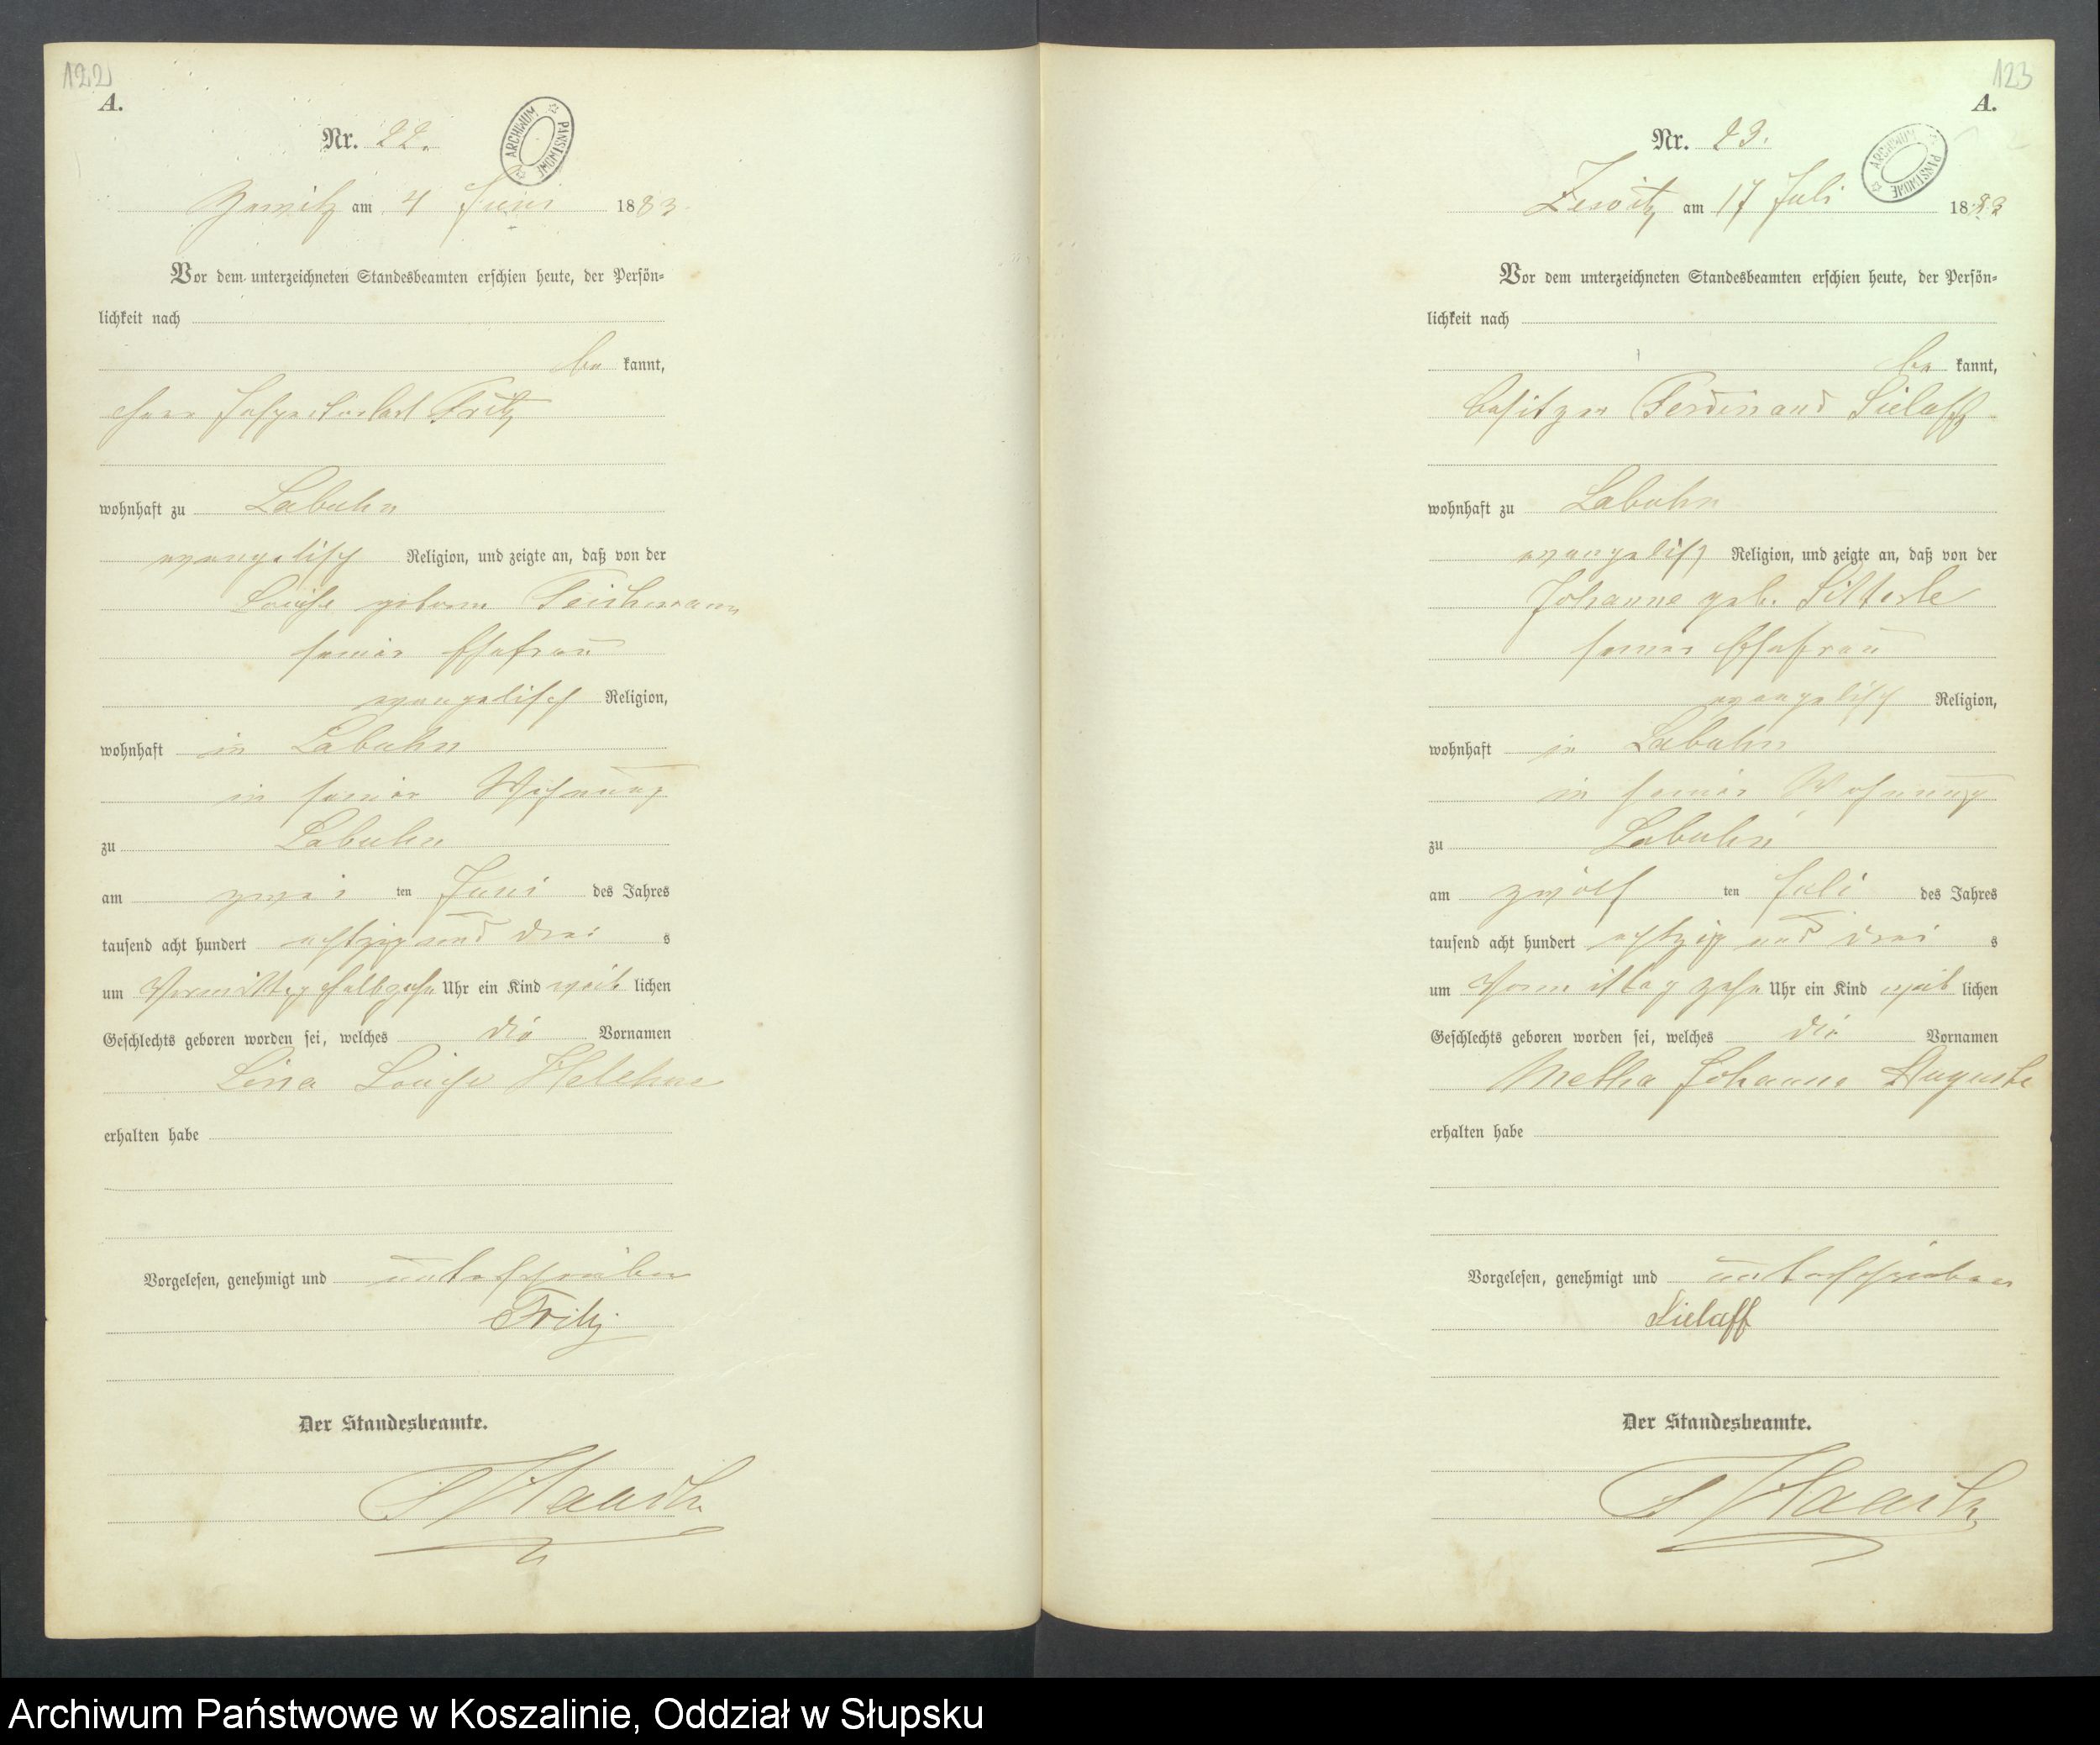 122
A.
Nr. 22.
ARCHIWUM PAŃSTWOWE
Zewitz am 4 Juni 1883
Vor dem unterzeichneten Standesbeamten erschien heute, der Persön-
lichkeit nach
be kannt,
Herr Inspector Carl Fritz
wohnhaft zu Labuhn
evangelisch Religion, und zeigte an, daß von der
Louise geborne Teichmann
seiner Ehefrau
evangelisch Religion,
wohnhaft in Labuhn
in seiner Wohnung
zu Labuhn
am zwei ten Juni des Jahres
tausend acht hundert achtzig und drei s
um Vormittag halbzehn Uhr ein Kind weib lichen
Geschlechts geboren worden sei, welches die Vornamen
Lina Louise Helehne
erhalten habe
Vorgelesen, genehmigt und unterschrieben
Fritz
Der Standesbeamte.
123
A.
Nr. 23.
ARCHIWUM PAŃSTWOWE
Zewitz am 17 Juli 1883
Vor dem unterzeichneten Standesbeamten erschien heute, der Persön-
lichkeit nach
be kannt,
Besitzer Ferdinand Sielaff
wohnhaft zu Labuhn
evangelisch Religion, und zeigte an, daß von der
Johanne geb.
seiner Ehefrau
evangelisch Religion,
wohnhaft in Labuhn
in seiner Wohnung
zu Labuhn
am zwölf ten Juli des Jahres
tausend acht hundert achtzig und drei s
um Vormittag zehn Uhr ein Kind weib lichen
Geschlechts geboren worden sei, welches die Vornamen
Metha Johanne Auguste
erhalten habe
Vorgelesen, genehmigt und unterschrieben
Sielaff
Der Standesbeamte.
Archiwum Państwowe w Koszalinie, Oddział w Słupsku